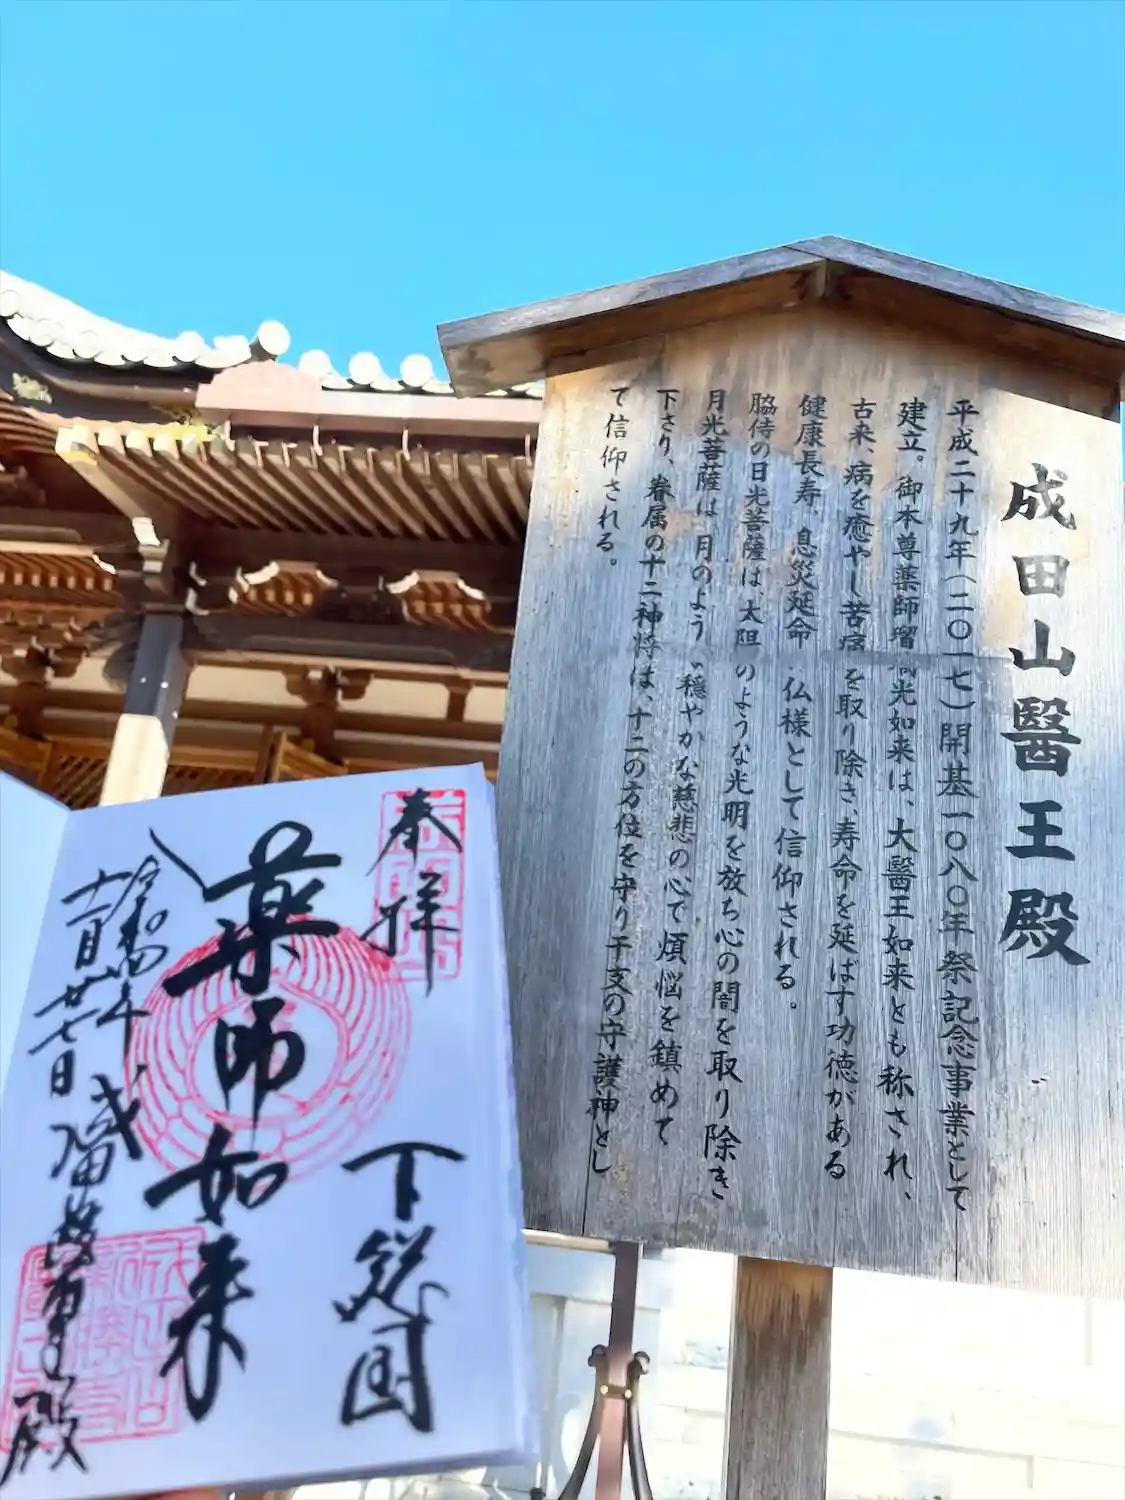 成田山醫王殿
平成二十九年（二〇一七）開基一〇八〇年祭記念事業として
建立。御本尊薬師瑠璃光如来は、大醫王如来とも称され、
古来、病を癒やし苦痛を取り除き、寿命を延ばす功徳がある
健康長寿、息災延命、仏様として信仰される。
脇侍の日光菩薩は、太陽のような光明を放ち心の闇を取り除き
月光菩薩は、月のような穏やかな慈悲の心で煩悩を鎮めて
下さり、眷属の十二神将は、十二の方位を守り干支の守護神とし
て信仰される。
奉拝
下総国
薬師如来
十一月廿七日
成田山醫王殿